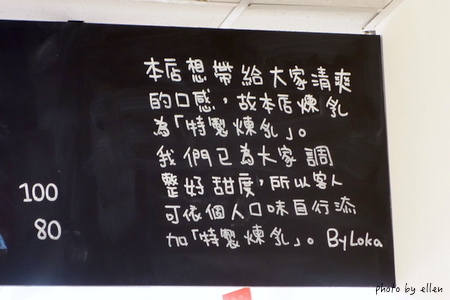 本店想帶給大家清爽
的口感，故本店煉乳
為「特製煉乳」。
我們已為大家調
整好甜度，所以客人
可依個人口味自行添
加「特製煉乳」。ByLoka
100
80
photo by ellen